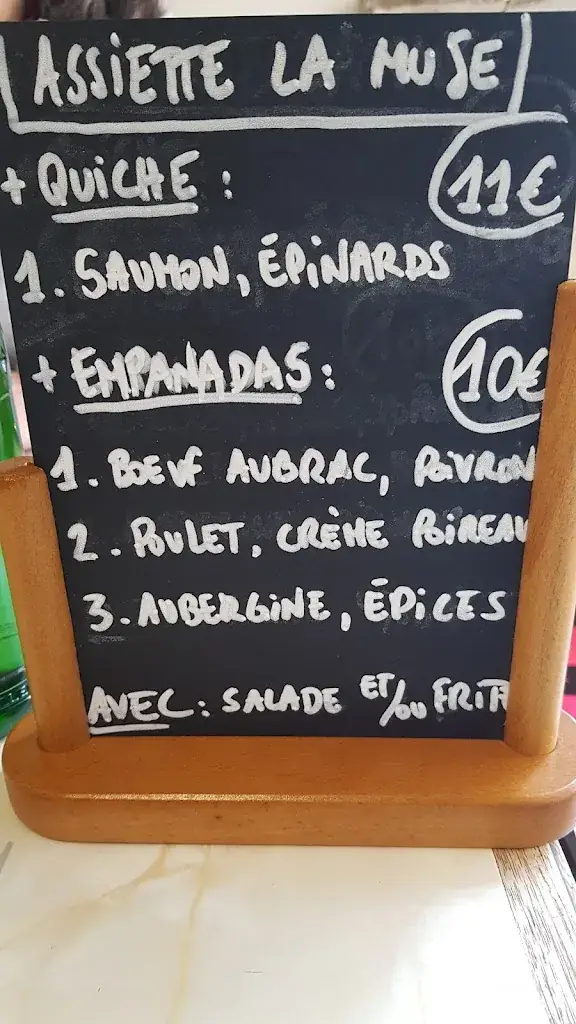 ASSIETTE LA MUSE
+ QUICHE : 11€
1. SAUMON, ÉPINARDS
+ EMPANADAS : 10€
1. BOEUF AUBRAC, POIVRON
2. POULET, CRÈME POIREAU
3. AUBERGINE, ÉPICES
AVEC : SALADE ET/OU FRITE